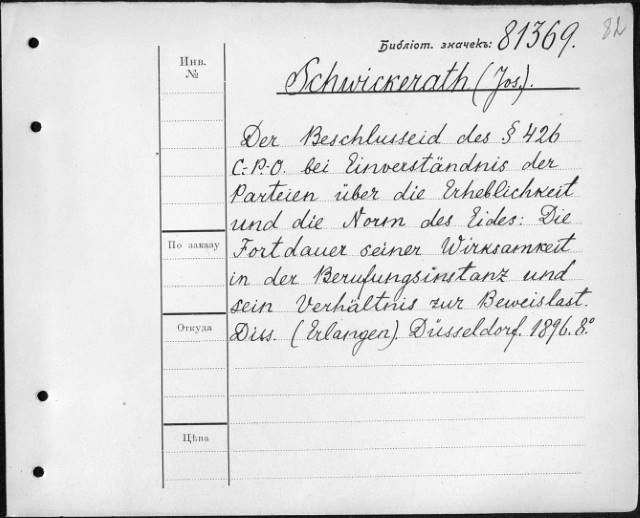 82
Библіот. значекъ: 81369.
Инв.
№
Schwickerath (Jos.).
Der Beschlusseid des § 426
C.-P.-O. bei Einverständnis der
Parteien über die Erheblichkeit
und die Norm des Eides: Die
По заказу
Fortdauer seiner Wirksamkeit
in der Berufungsinstanz und
sein Verhältnis zur Beweislast.
Откуда
Diss. (Erlangen). Düsseldorf. 1896. 8.°
Цѣна